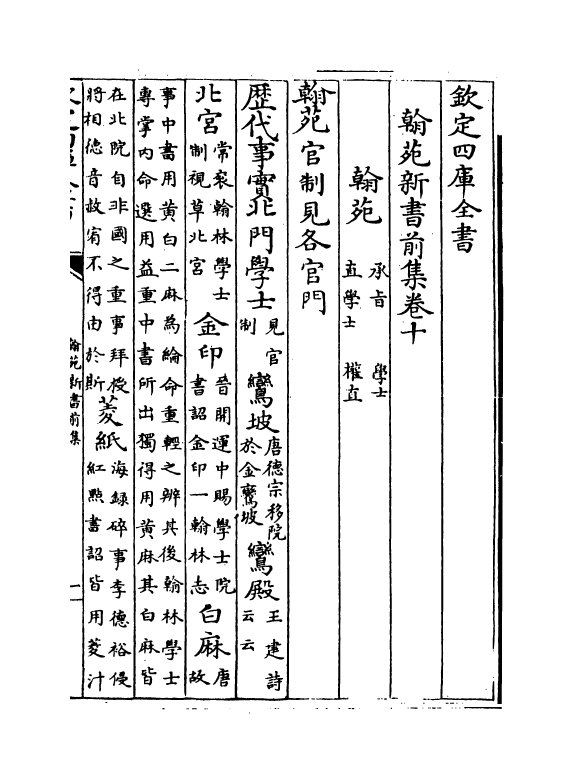 欽定四庫全書
翰苑新書前集卷十
翰苑 承旨 學士 直學士 權直
翰苑官制見各官門
歴代事實北門學士 見官制 鸞坡 唐德宗移院於金鸞坡 鸞殿 王建詩云云
北宮 常衮翰林學士制視草北宮 金印 晉開運中賜學士院書詔金印一翰林志 白麻 唐故
事中書用黄白二麻為綸命重輕之辨其後翰林學士
專掌内命選用益重中書所出獨得用黄麻其白麻皆
在北院自非國之重事拜授
將相徳音赦宥不得由於斯 菱紙 海録碎事李德裕侵紅㸃書詔皆用菱汁
翰苑新書前集
一